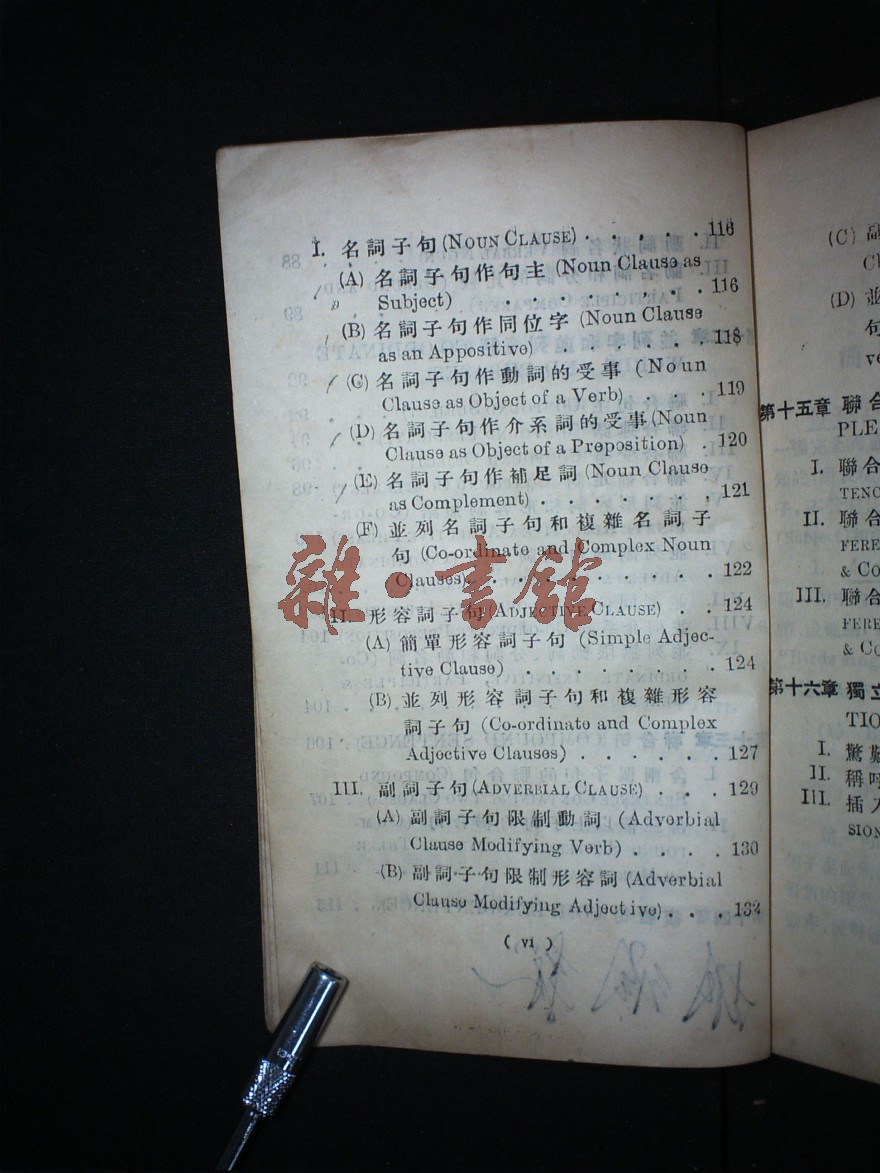 I. 名詞子句 (NOUN CLAUSE) . . . . . 116
(A) 名詞子句作句主 (Noun Clause as
Subject) . . . . . . . . 116
(B) 名詞子句作同位字 (Noun Clause
as an Appositive) . . . . . . 118
(C) 名詞子句作動詞的受事 (Noun
Clause as Object of a Verb) . . . 119
(D) 名詞子句作介系詞的受事 (Noun
Clause as Object of a Preposition) . 120
(E) 名詞子句作補足詞 (Noun Clause
as Complement) . . . . . . . 121
(F) 並列名詞子句和複雜名詞子
句 (Co-ordinate and Complex Noun
Clauses) . . . . . . . . . 122
II. 形容詞子句 (ADJECTIVE CLAUSE) . . 124
(A) 簡單形容詞子句 (Simple Adjec-
tive Clause) . . . . . . . 124
(B) 並列形容詞子句和複雜形容
詞子句 (Co-ordinate and Complex
Adjective Clauses) . . . . . . 127
III. 副詞子句 (ADVERBIAL CLAUSE) . . . 129
(A) 副詞子句限制動詞 (Adverbial
Clause Modifying Verb) . . . . 130
(B) 副詞子句限制形容詞 (Adverbial
Clause Modifying Adjective) . . . 132
( vi )
雜·書館
(C) 副
(D) 並
句
第十五章 聯合
PLE
I. 聯合
TENC
II. 聯合
FERE
& Co
III. 聯合
FERE
& Co
第十六章 獨立
TIO
I. 驚
II. 稱呼
III. 插入
SION